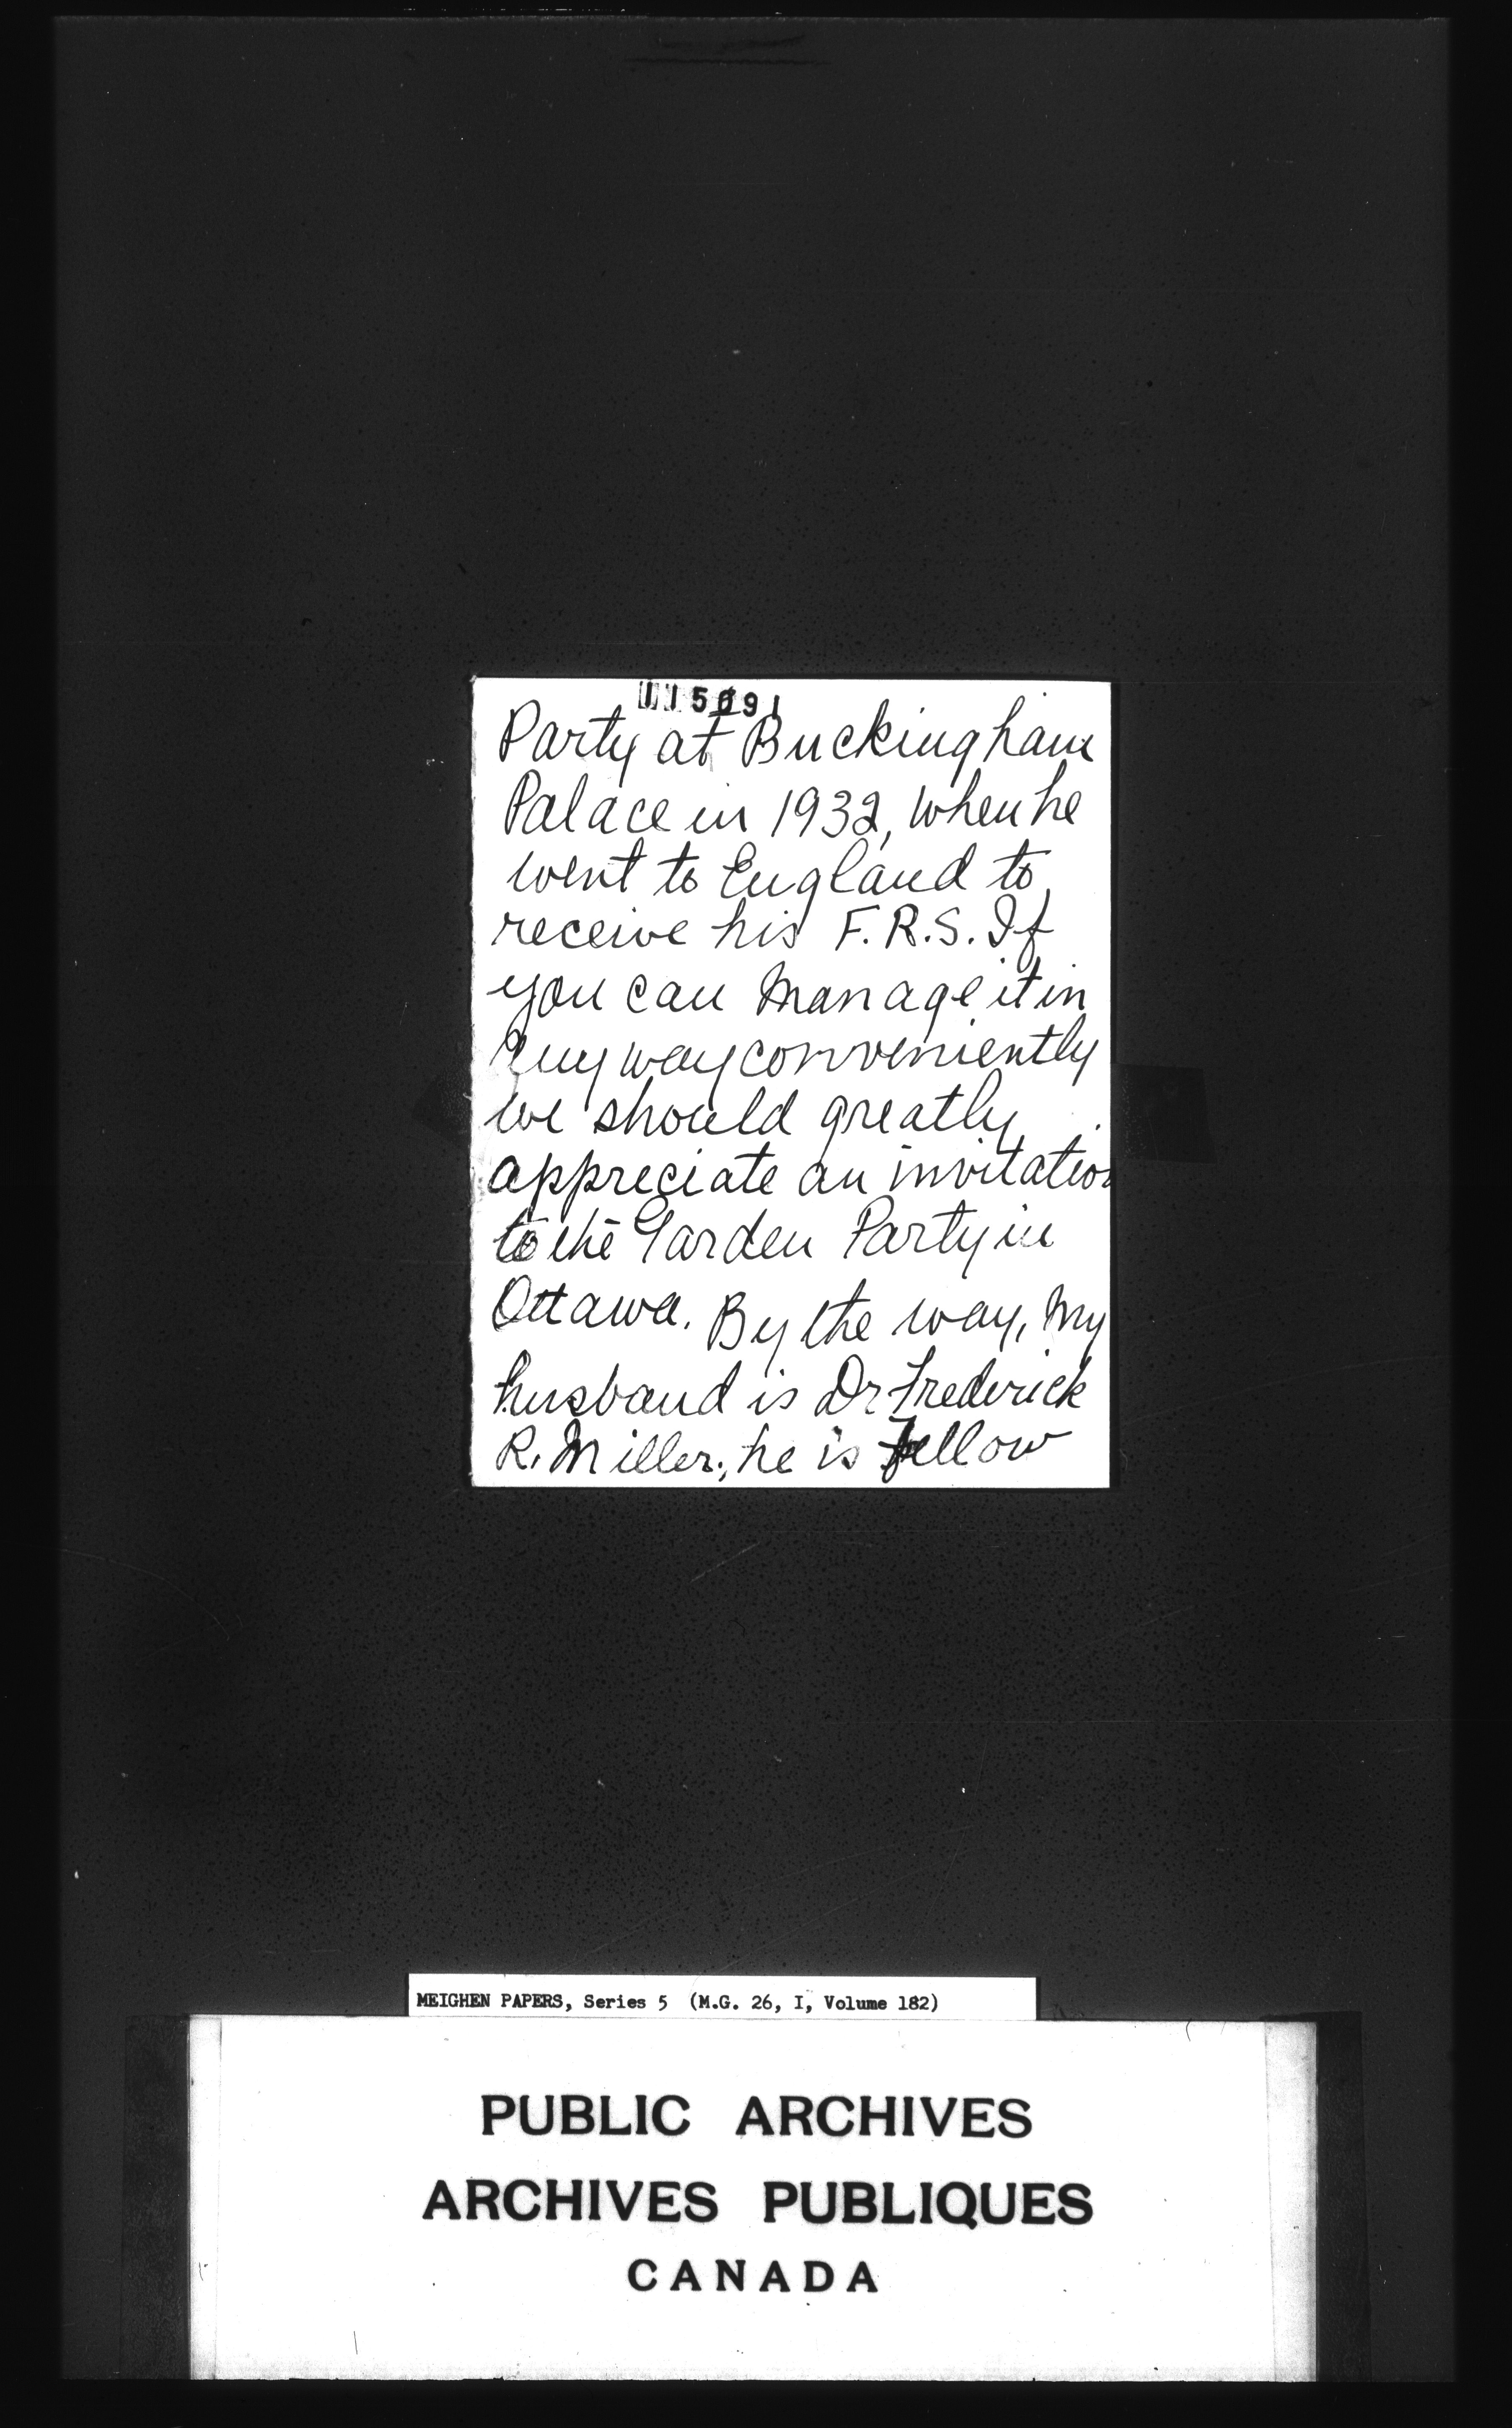 115091
Party at Buckingham
Palace in 1932, when he
went to England to
receive his F.R.S. If
you can manage it in
any way conveniently
we should greatly
appreciate an invitation
to the Garden Party in
Ottawa. By the way, my
husband is Dr Frederick
R. Miller; he is Fellow
MEIGHEN PAPERS, Series 5 (M.G. 26, I, Volume 182)
PUBLIC ARCHIVES
ARCHIVES PUBLIQUES
CANADA